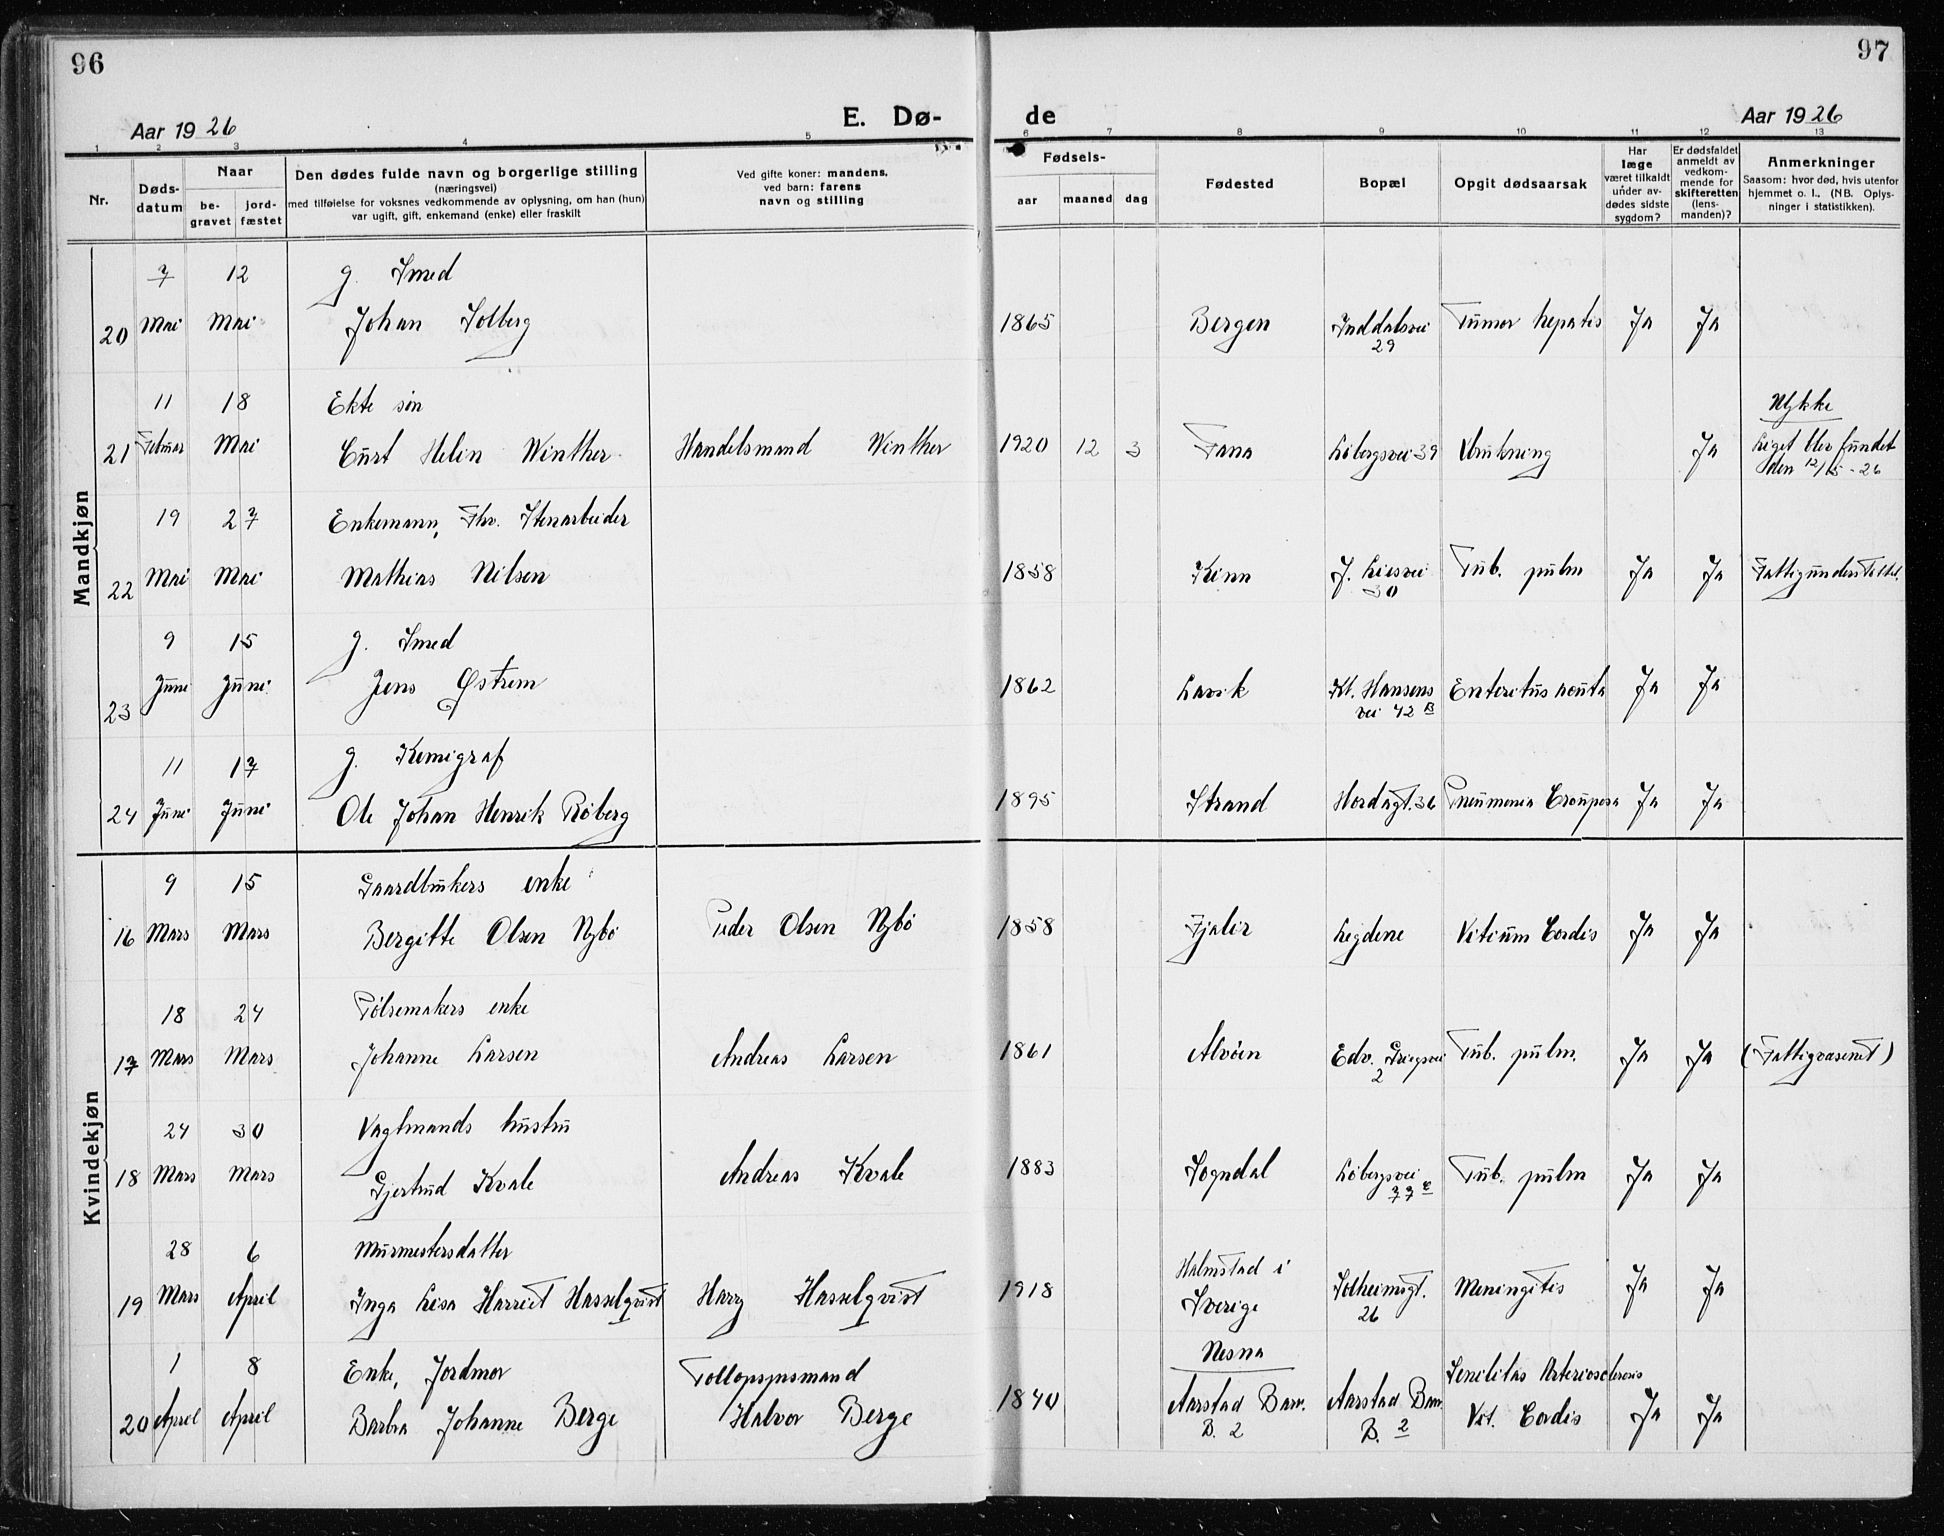 96
97
Aar 1926
E. Dø-
de
Aar 1926
1 2 3 4 5 6 7 8 9 10 11 12 13
Nr.
Døds-
datum
Naar
be-
gravet
jord-
fæstet
Den dødes fulde navn og borgerlige stilling
(næringsvei)
med tilføielse for voksnes vedkommende av oplysning, om han (hun)
var ugift, gift, enkemand (enke) eller fraskilt
Ved gifte koner: mandens,
ved barn: farens
navn og stilling
Fødsels-
aar maaned dag
Fødested
Bopæl
Opgit dødsaarsak
Har
læge
været tilkaldt
under av-
dødes sidste
sygdom?
Er dødsfaldet
anmeldt av
vedkom-
mende for
skifteretten
(lens-
manden)?
Anmerkninger
Saasom: hvor død, hvis utenfor
hjemmet o. l.. (NB. Oplys-
ninger i statistikken).
Mandkjøn
7 12 g. Smed
20 Mai Mai Johan Solberg 1865 Bergen Inddalsvei Tumor hepatis Ja Ja
29
11 18 Ekte søn Ulykke
21 Februar Mai Curt Helin Winther Handelsmand Winther 1920 12 3 Fana Løbergsvei 39 Drukning Ja Liget blev fundet
den 12/5 - 26
19 27 Enkemann, Fhv. Stenarbeider
22 Mai Mai Mathias Nilsen 1858 Kinn J. Liesvei Tub. pulm Ja Ja Fattigunderstøttet.
30
9 15 g. Smed
23 Juni Juni Jens Østrem 1862 Lavik Kl. Hansens Enteritus acuta Ja Ja
vei 42 B
11 17 g. Kemigraf
24 Juni Juni Ole Johan Henrik Røberg 1895 Strand Hordagt. 36 Pneumonia Crouposa Ja Ja
Kvindekjøn
9 15 Gaardbrukers enke
16 Mars Mars Bergitte Olsen Nybø Peder Olsen Nybø 1858 Fjaler Legdene Vitium Cordis Ja Ja
18 24 Pølsemakers enke
17 Mars Mars Johanne Larsen Andreas Larsen 1861 Alvøen Edv. Griegsvei Tub. pulm. Ja Ja (Fattigvæsenet)
2
24 30 Vagtmands hustru
18 Mars Mars Gjertrud Kvale Andreas Kvale 1883 Sogndal Løbergsvei Tub. pulm Ja Ja
77 c
28 6 Murmestersdatter
19 Mars April Inga Lisa Harriet Hasselqvist Harry Hasselqvist 1918 Halmstad i Sverige Solheimsgt. Meningitis Ja Ja
26
1 8 Enke, Jordmor Tollopsynsmand Nesna Senilitas Arteriosclerosis
20 April April Barbra Johanne Berge Halvor Berge 1840 Aarstad Barr. Aarstad Barr. Vit. Cordis Ja Ja
B. 2 B. 2